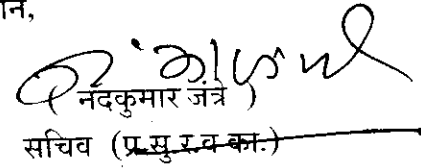 ान,
( नंदकुमार जंत्रे )
सचिव (प्र.सु.र.व का.)